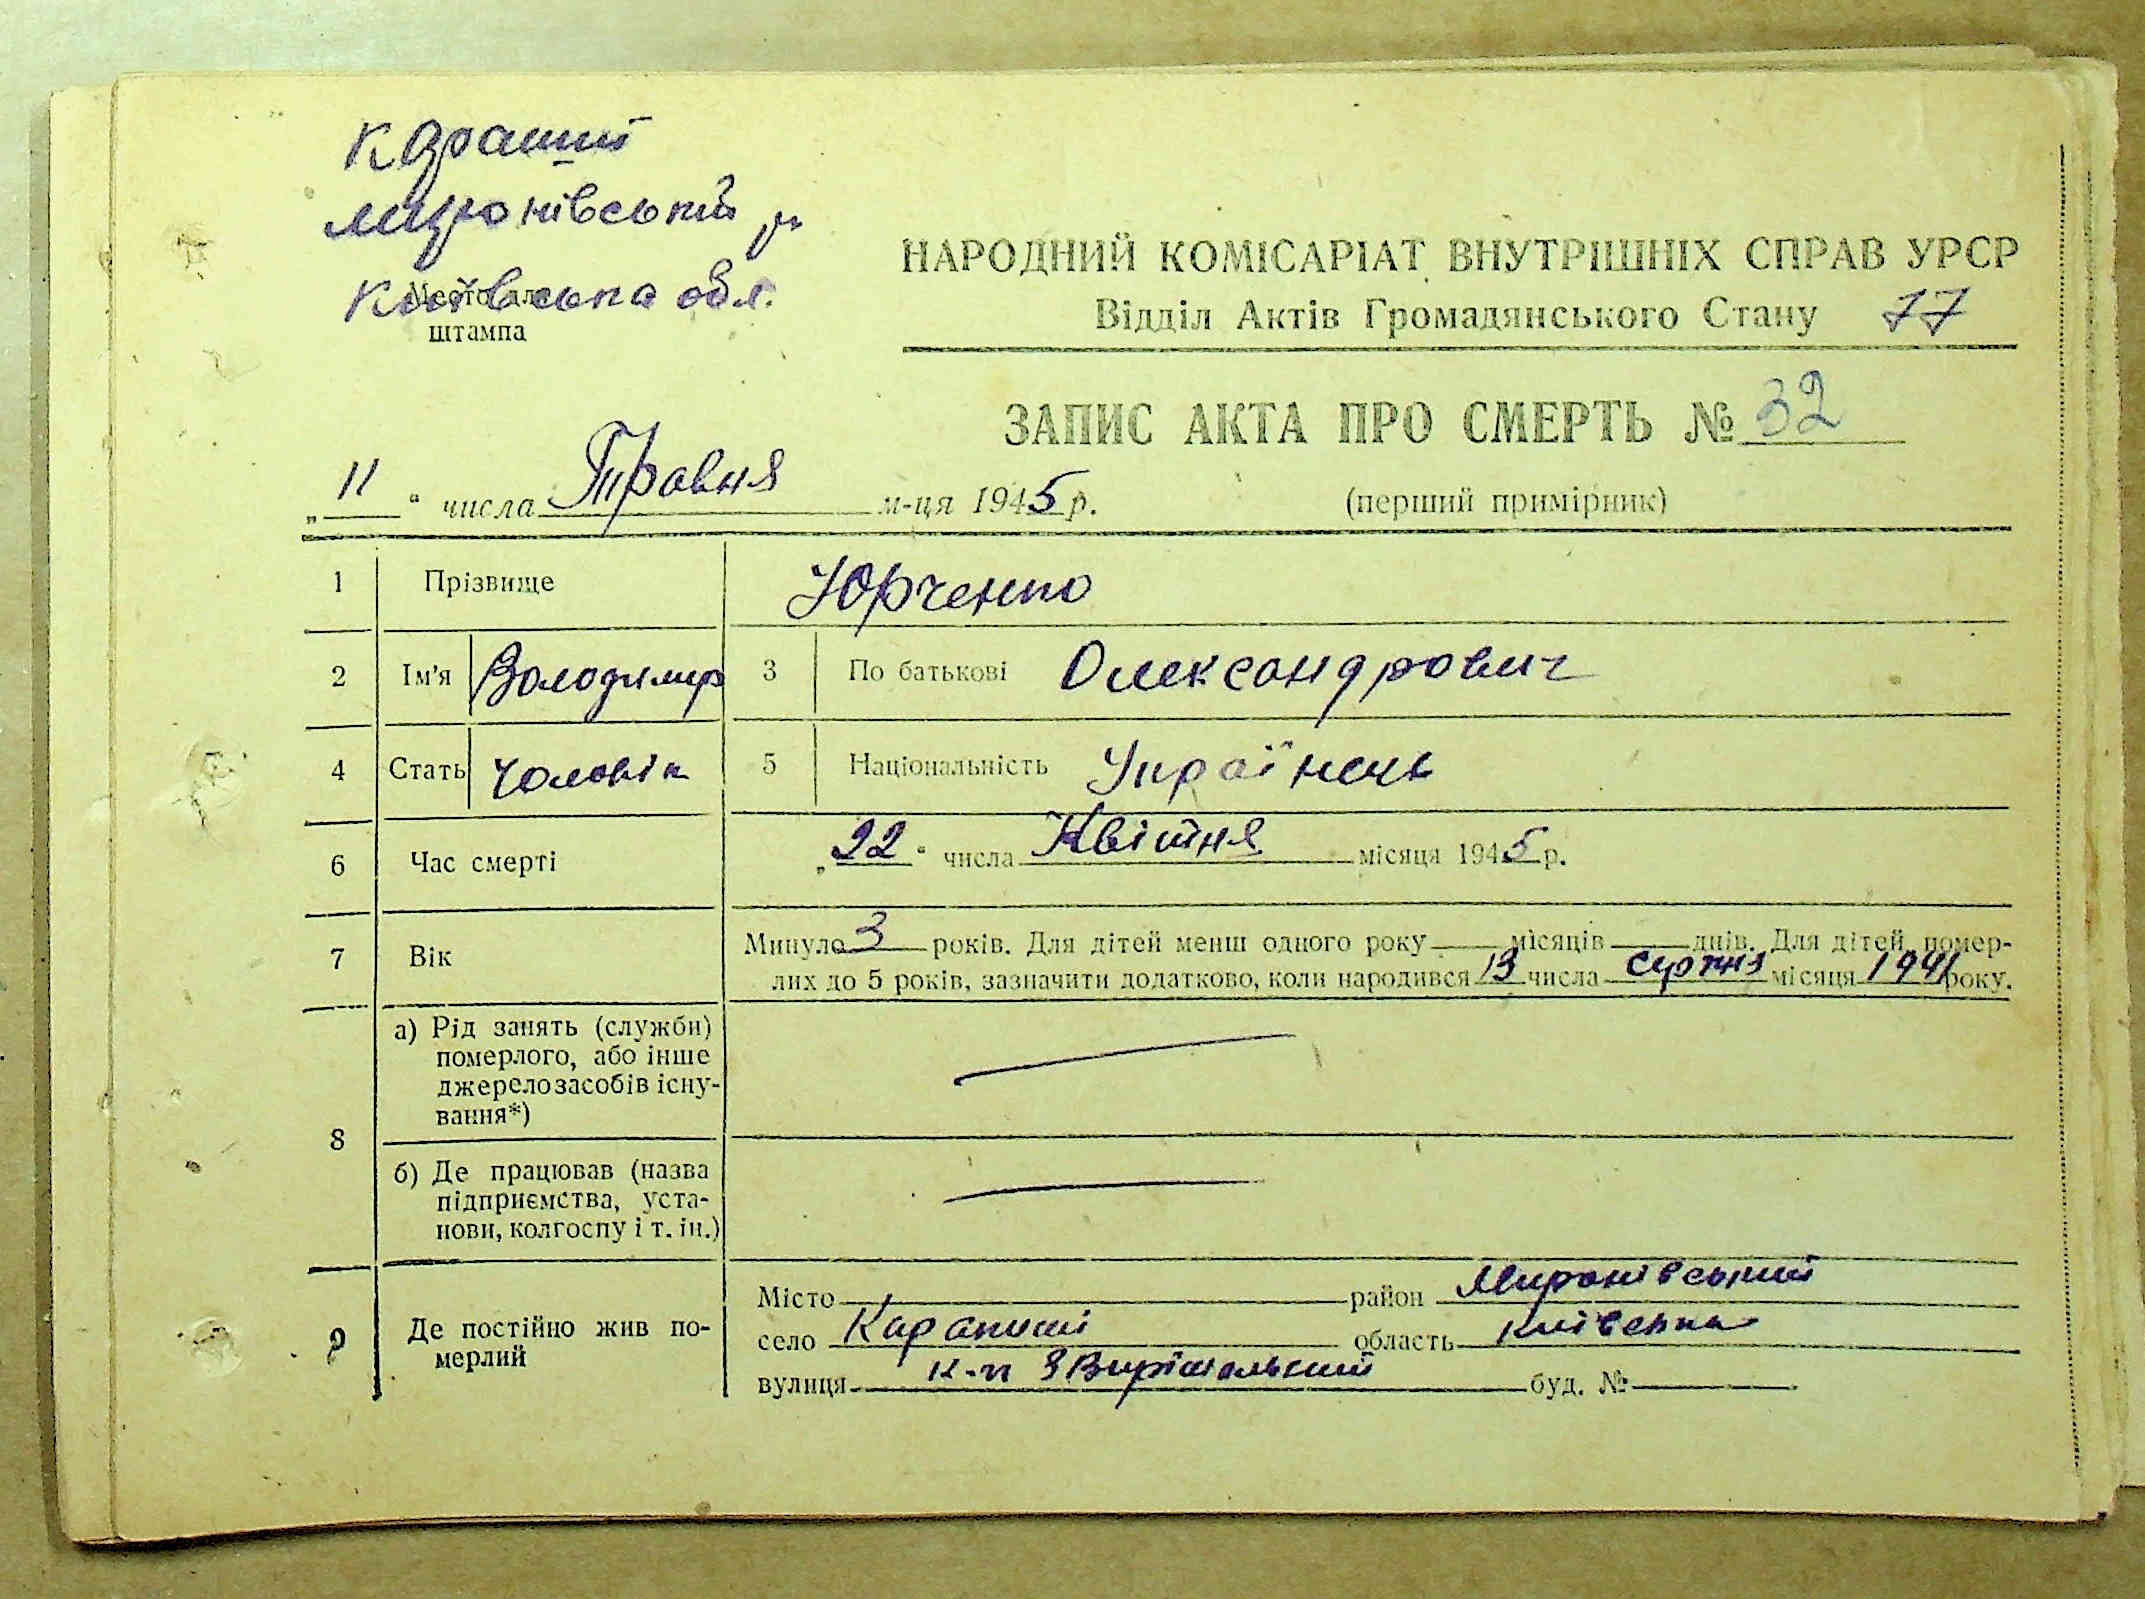 Карапиші
Миронівський р-н
Київська обл.
Место для
штампа
НАРОДНИЙ КОМІСАРІАТ ВНУТРІШНІХ СПРАВ УРСР
Відділ Актів Громадянського Стану 77
ЗАПИС АКТА ПРО СМЕРТЬ № 32
„11" числа Травня м-ця 1945 р. (перший примірник)
1 Прізвище Юрченко
2 Ім'я Володимир 3 По батькові Олександрович
4 Стать чоловік 5 Національність Українець
6 Час смерті „22" числа Квітня місяця 1945 р.
7 Вік Минуло 3 років. Для дітей менш одного року місяців днів. Для дітей, помер-
лих до 5 років, зазначити додатково, коли народився 13 числа серпня місяця 1941 року.
8 а) Рід занять (служби)
померлого, або інше
джерело засобів існу-
вання*)
б) Де працював (назва
підприємства, уста-
нови, колгоспу і т. ін.)
9 Де постійно жив по-
мерлий
Місто район Миронівський
село Карапиші область Київська
вулиця к-п 3 Вирішальський буд. №